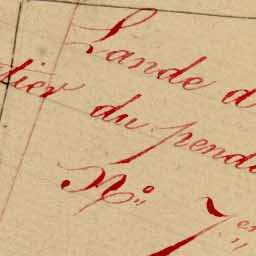 Lande d
tier du pend
N° 7er